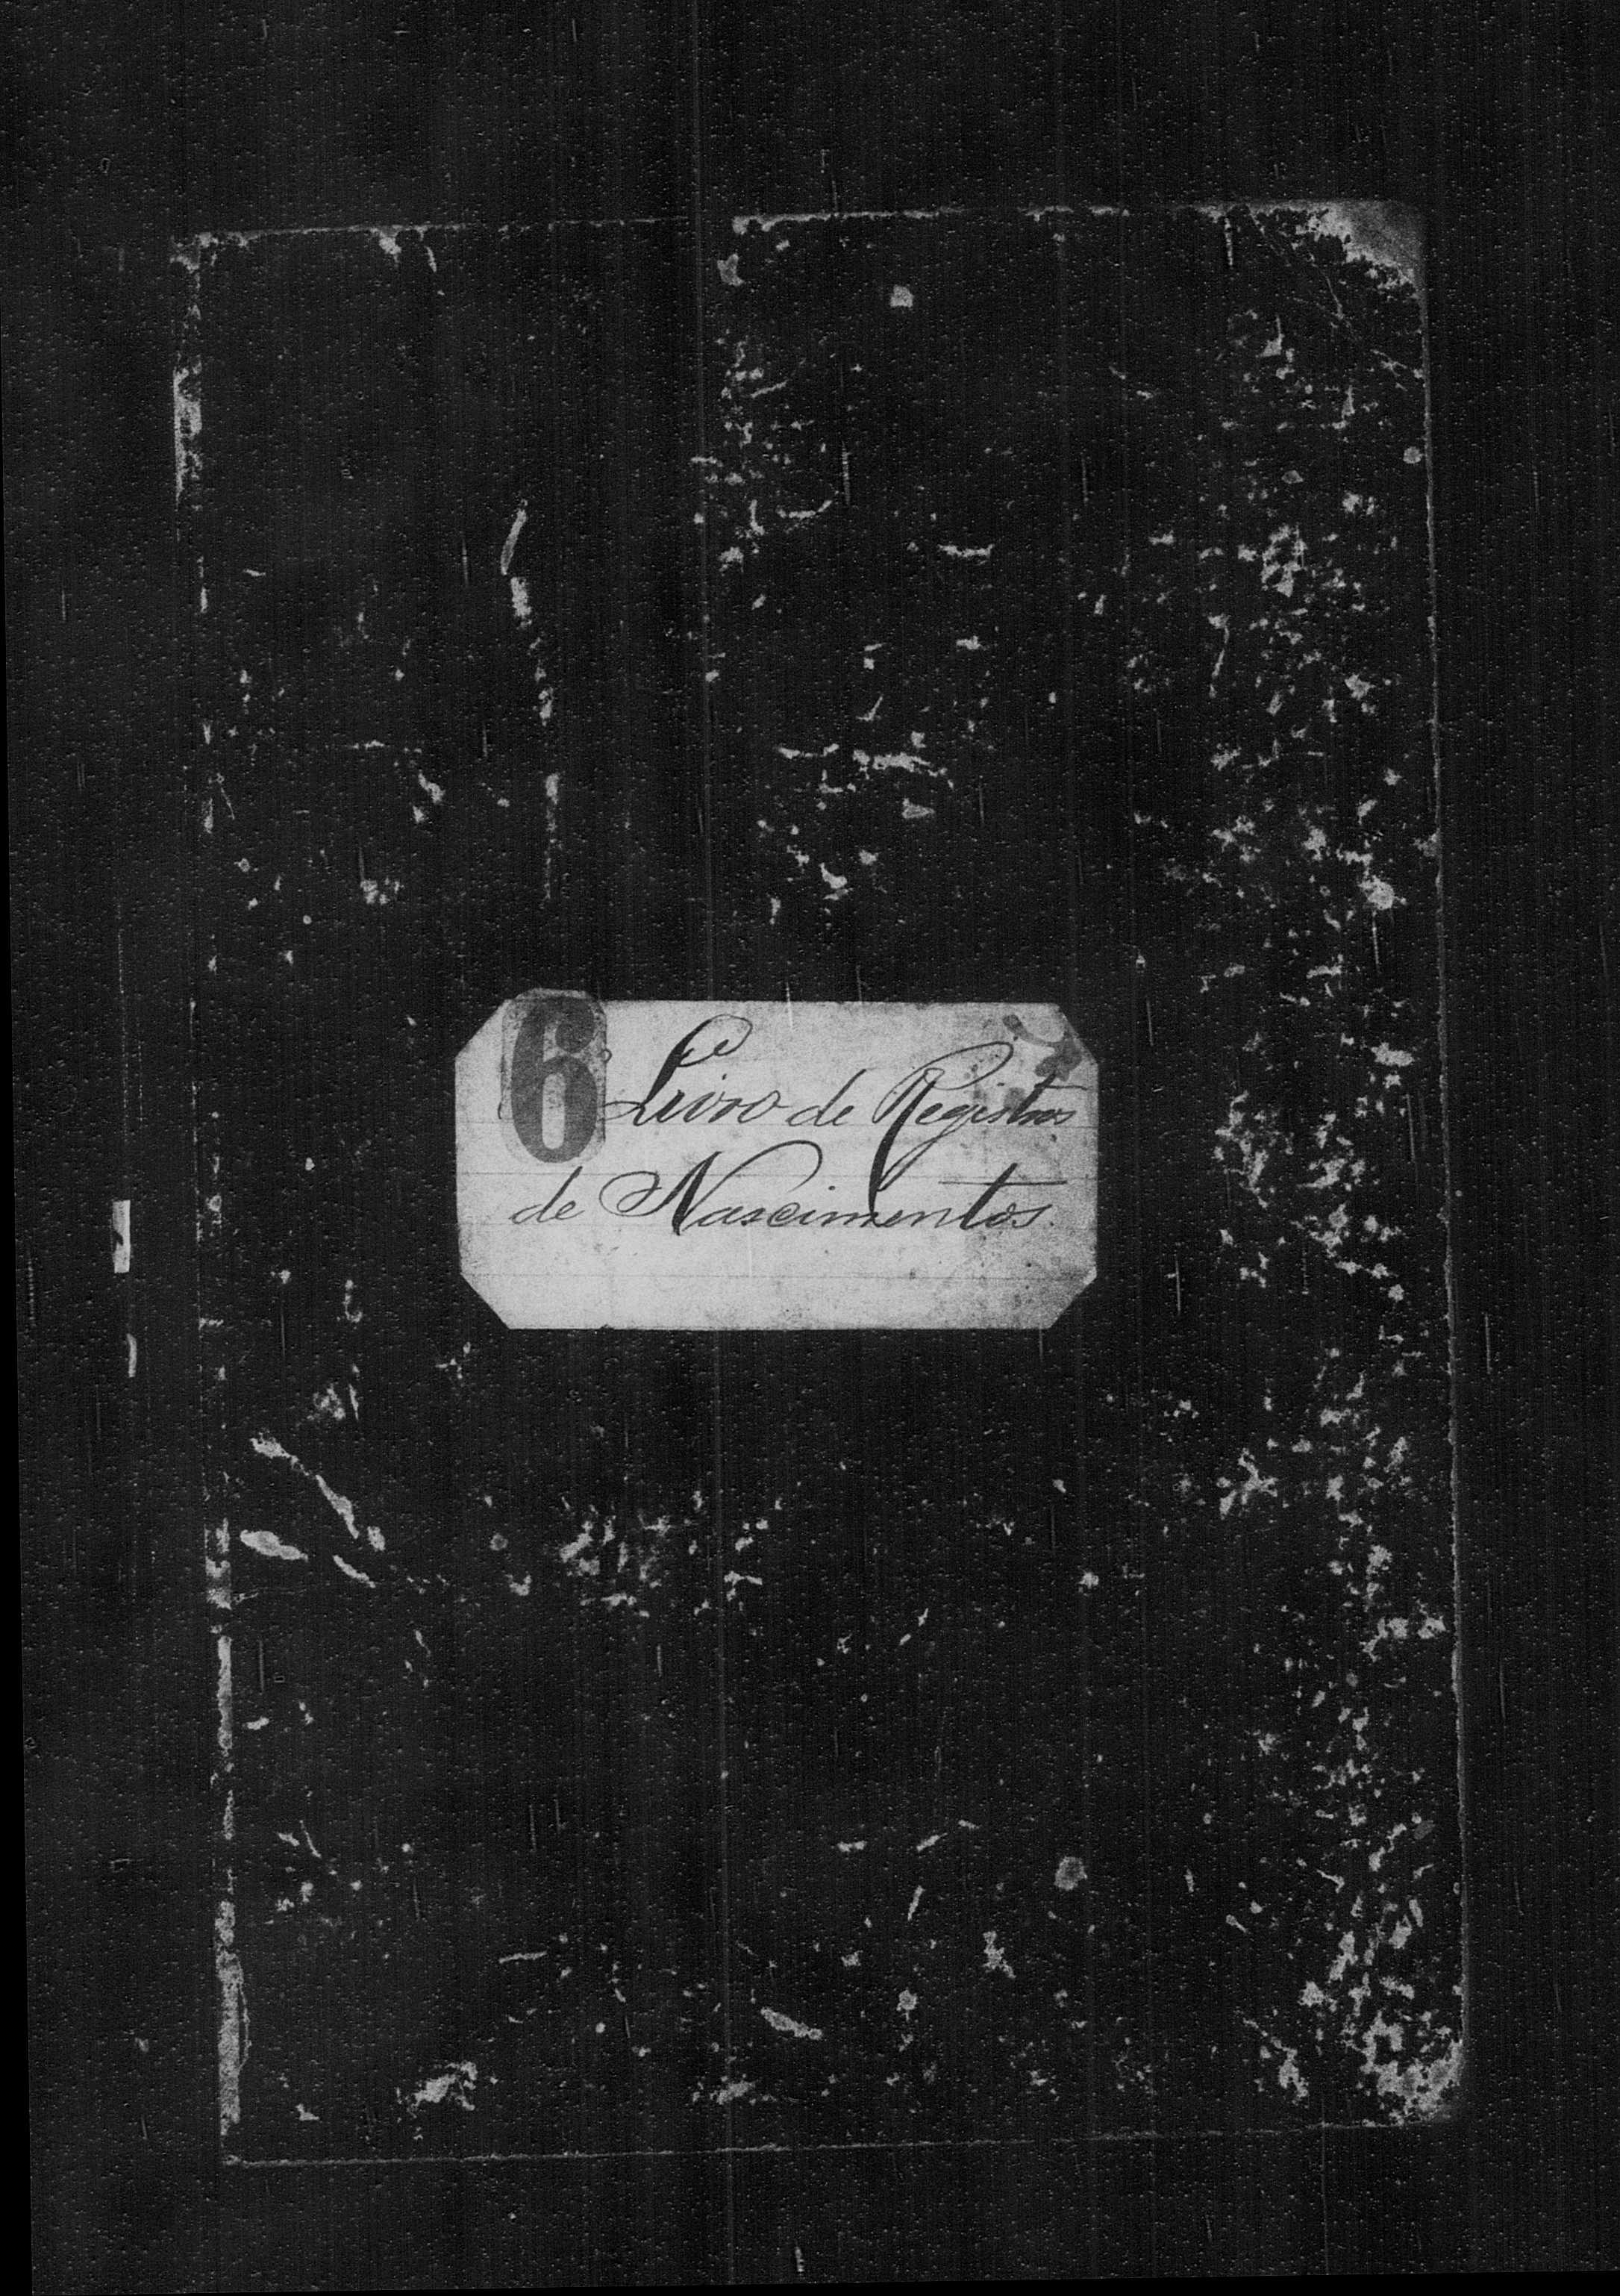 6 Livro de Registros
de Nascimentos.